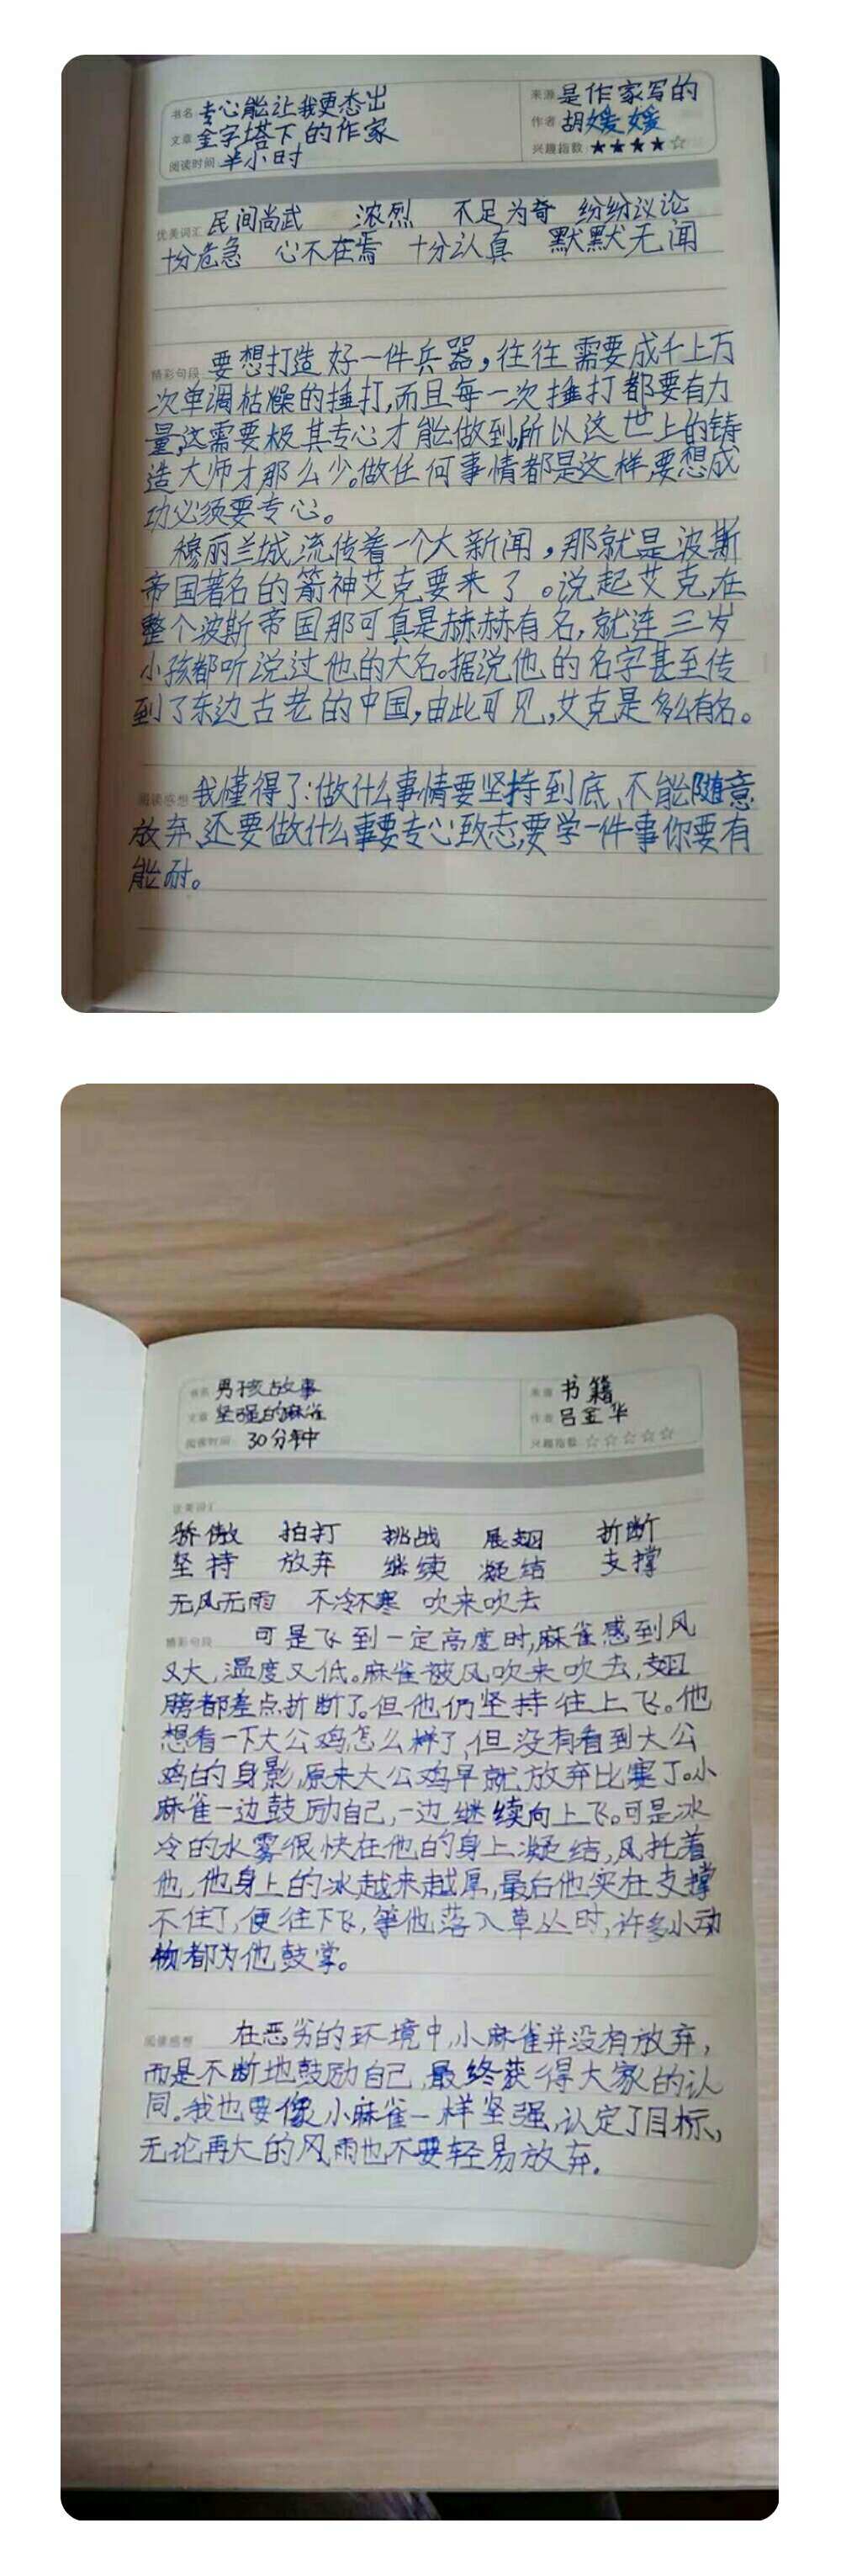 书名 专心能让我更杰出
来源 是作家写的
文章 金字塔下的作家
作者 胡媛媛
阅读时间 半小时
兴趣指数 ★★★★☆
优美词汇 民间尚武 浓烈 不足为奇 纷纷议论
十分危急 心不在焉 十分认真 默默无闻
精彩句段 要想打造好一件兵器，往往需要成千上万
次单调枯燥的捶打,而且每一次捶打都要有力
量,这需要极其专心才能做到,所以这世上的铸
造大师才那么少。做任何事情都是这样要想成
功必须要专心。
穆丽兰城流传着一个大新闻，那就是波斯
帝国著名的箭神艾克要来了。说起艾克,在
整个波斯帝国那可真是赫赫有名,就连三岁
小孩都听说过他的大名。据说他的名字甚至传
到了东边古老的中国,由此可见,艾克是多么有名。
阅读感想 我懂得了:做什么事情要坚持到底、不能随意
放弃、还要做什么事要专心致志,要学一件事你要有
能耐。
书名 男孩故事
来源 书籍
文章 坚强的麻雀
作者 吕金华
阅读时间 30分钟
兴趣指数 ☆☆☆☆☆
优美词汇
骄傲 拍打 挑战 展翅 折断
坚持 放弃 继续 凝结 支撑
无风无雨 不冷不寒 吹来吹去
精彩句段 可是飞到一定高度时,麻雀感到风
又大,温度又低。麻雀被风吹来吹去,翅
膀都差点折断了。但他们坚持往上飞。他
想看一下大公鸡怎么样了,但没有看到大公
鸡的身影,原来大公鸡早就放弃比赛了。小
麻雀一边鼓励自己,一边继续向上飞。可是冰
冷的水雾很快在他的身上凝结,风托着
他,他身上的冰越来越厚,最后他实在支撑
不住了,便往下飞,等他落入草丛时,许多小动
物都为他鼓掌。
阅读感想 在恶劣的环境中,小麻雀并没有放弃,
而是不断地鼓励自己,最终获得大家的认
同。我也要像小麻雀一样坚强,认定了目标,
无论再大的风雨也不要轻易放弃.